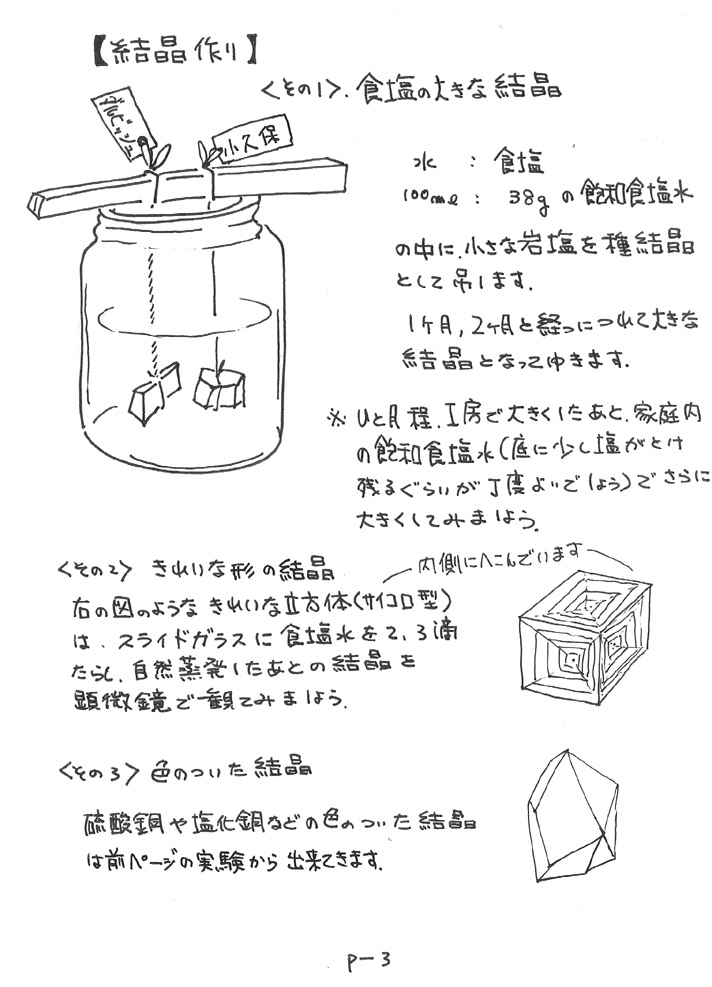 【結晶作り】
<その1>. 食塩の大きな結晶
ダルビッシュ
小久保
水 : 食塩
100ml : 38g の飽和食塩水
の中に、小さな岩塩を種結晶
として吊します.
1ヶ月, 2ヶ月と経つにつれて大きな
結晶となってゆきます.
※ ひと月程、工房で大きくしたあと、家庭内
の飽和食塩水(底に少し塩がとけ
残るぐらいが丁度よいでしょう)でさらに
大きくしてみましょう.
<その2> きれいな形の結晶
内側にへこんでいます
右の図のようなきれいな立方体(サイコロ型)
は、スライドガラスに食塩水を2、3滴
たらし、自然蒸発したあとの結晶を
顕微鏡で観てみましょう.
<その3> 色のついた結晶
硫酸銅や塩化銅などの色のついた結晶
は前ページの実験から出来てきます.
P-3